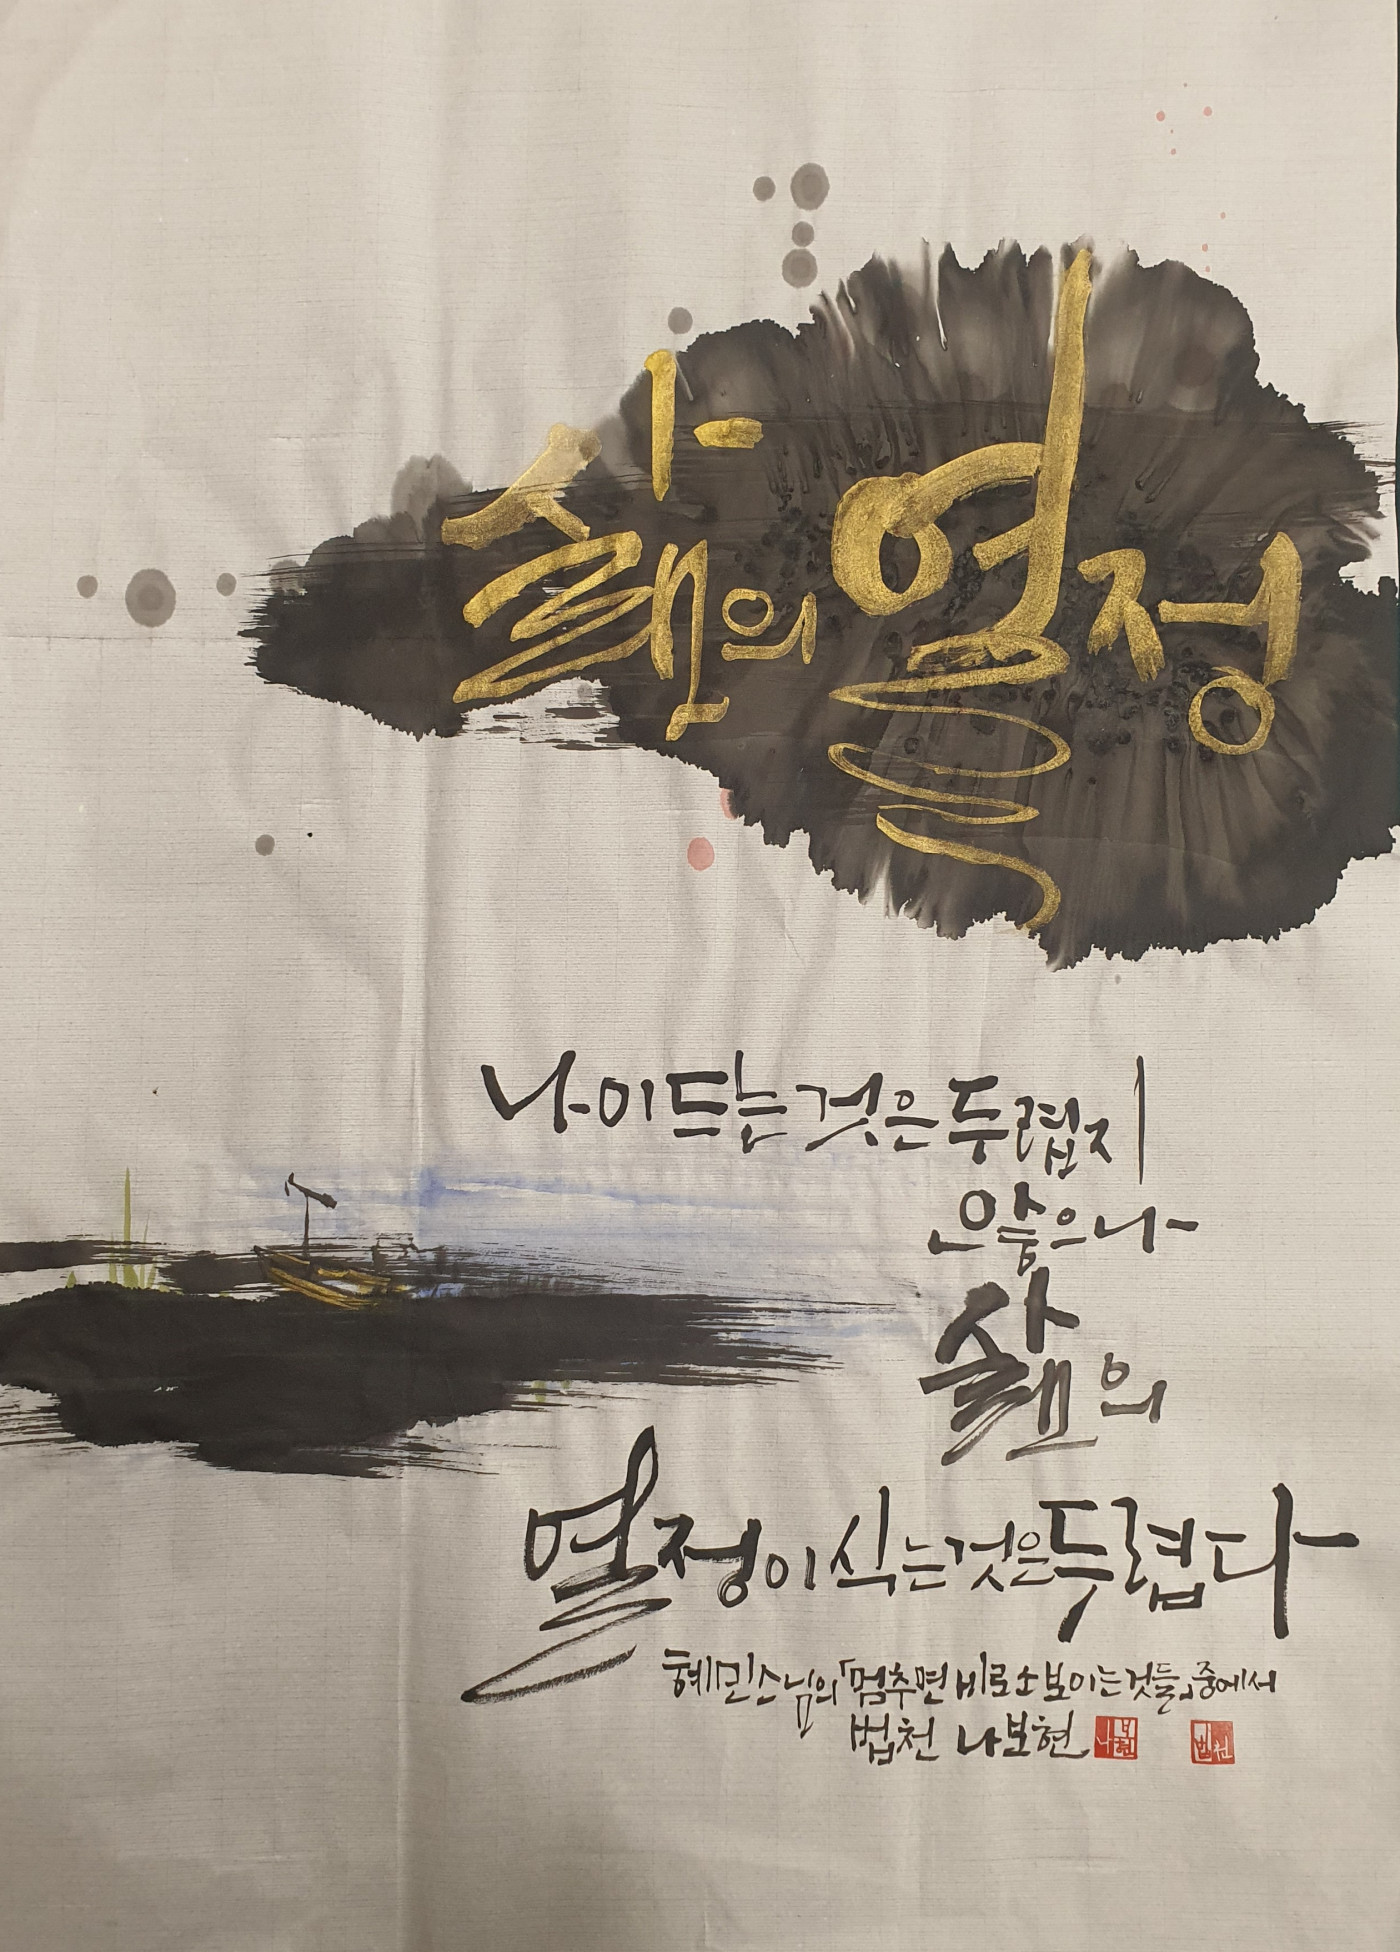 삶의 열정
나이 드는 것은 두렵지
않으나
삶의
열정이 식는 것은 두렵다
혜민스님의 「멈추면 비로소 보이는 것들」 중에서
법천 나보현 나보현 법천